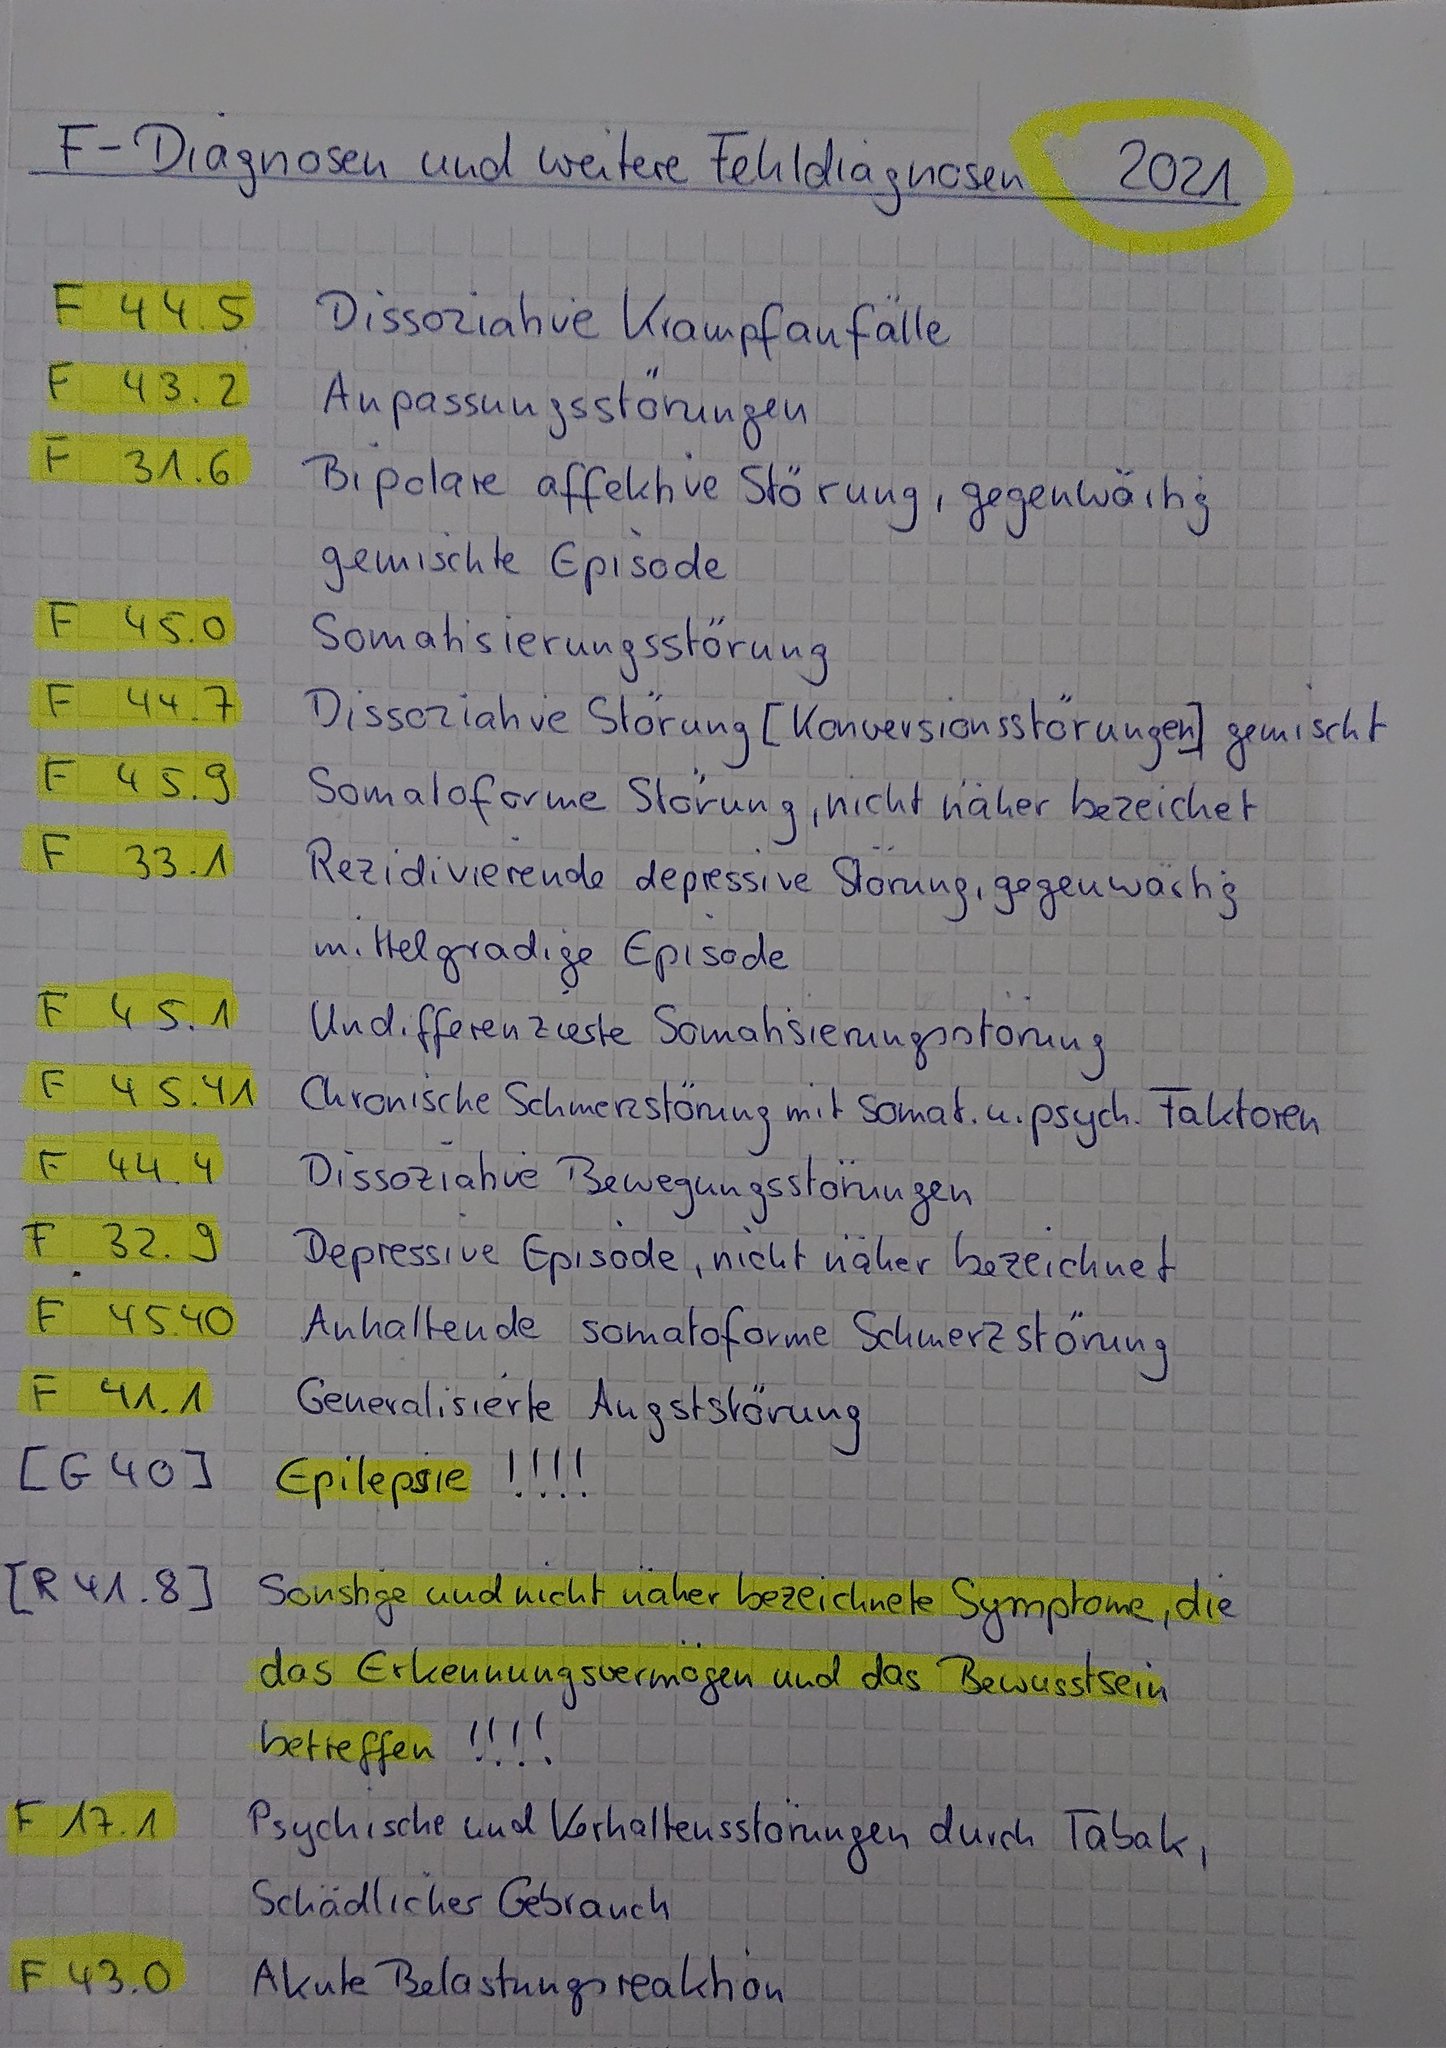 F-Diagnosen und weitere Fehldiagnosen 2021
F 44.5 Dissoziative Krampfanfälle
F 43.2 Anpassungsstörungen
F 31.6 Bipolare affektive Störung, gegenwärtig
gemischte Episode
F 45.0 Somatisierungsstörung
F 44.7 Dissoziative Störung [Konversionsstörungen] gemischt
F 45.9 Somatoforme Störung, nicht näher bezeichet
F 33.1 Rezidivierende depressive Störung, gegenwärtig
mittelgradige Episode
F 45.1 Undifferenzierte Somatisierungsstörung
F 45.41 Chronische Schmerzstörung mit somat. u. psych. Faktoren
F 44.4 Dissoziative Bewegungsstörungen
F 32.9 Depressive Episode, nicht näher bezeichnet
F 45.40 Anhaltende somatoforme Schmerzstörung
F 41.1 Generalisierte Angststörung
[G 40] Epilepsie !!!!
[R 41.8] Sonstige und nicht näher bezeichnete Symptome, die
das Erkennungsvermögen und das Bewusstsein
betreffen !!!!
F 17.1 Psychische und Verhaltensstörungen durch Tabak,
Schädlicher Gebrauch
F 43.0 Akute Belastungsreaktion